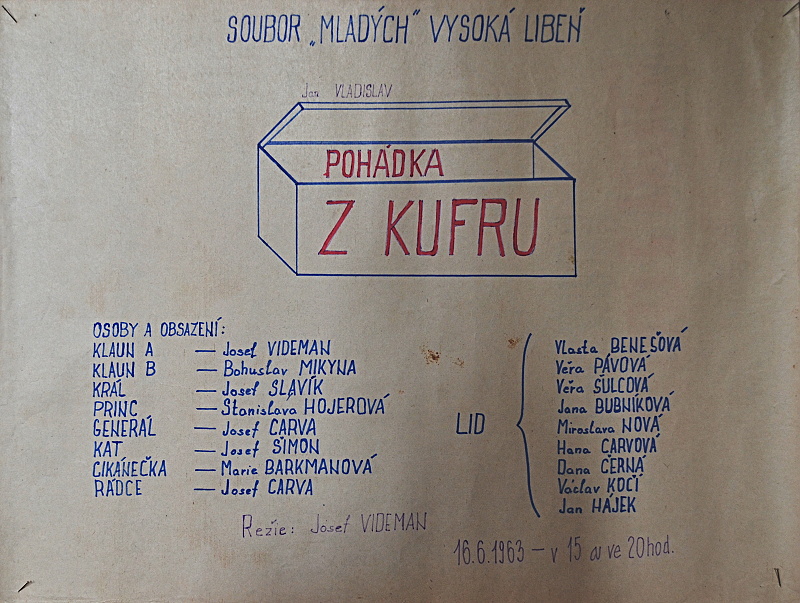 SOUBOR „MLADÝCH“ VYSOKÁ LIBEŇ
Jan VLADISLAV
POHÁDKA
Z KUFRU
OSOBY A OBSAZENÍ:
KLAUN A — Josef VIDEMAN
KLAUN B — Bohuslav MIKYNA
KRÁL — Josef SLAVÍK
PRINC — Stanislava HOJEROVÁ
GENERÁL — Josef CARVA
KAT — Josef ŠIMON
CIKÁNEČKA — Marie BARKMANOVÁ
RÁDCE — Josef CARVA
LID
Vlasta BENEŠOVÁ
Věra PÁVOVÁ
Věra ŠULCOVÁ
Jana BUBNÍKOVÁ
Miroslava NOVÁ
Hana CARVOVÁ
Dana ČERNÁ
Václav KOČÍ
Jan HÁJEK
Režie: Josef VIDEMAN
16.6.1963 — v 15 a ve 20 hod.